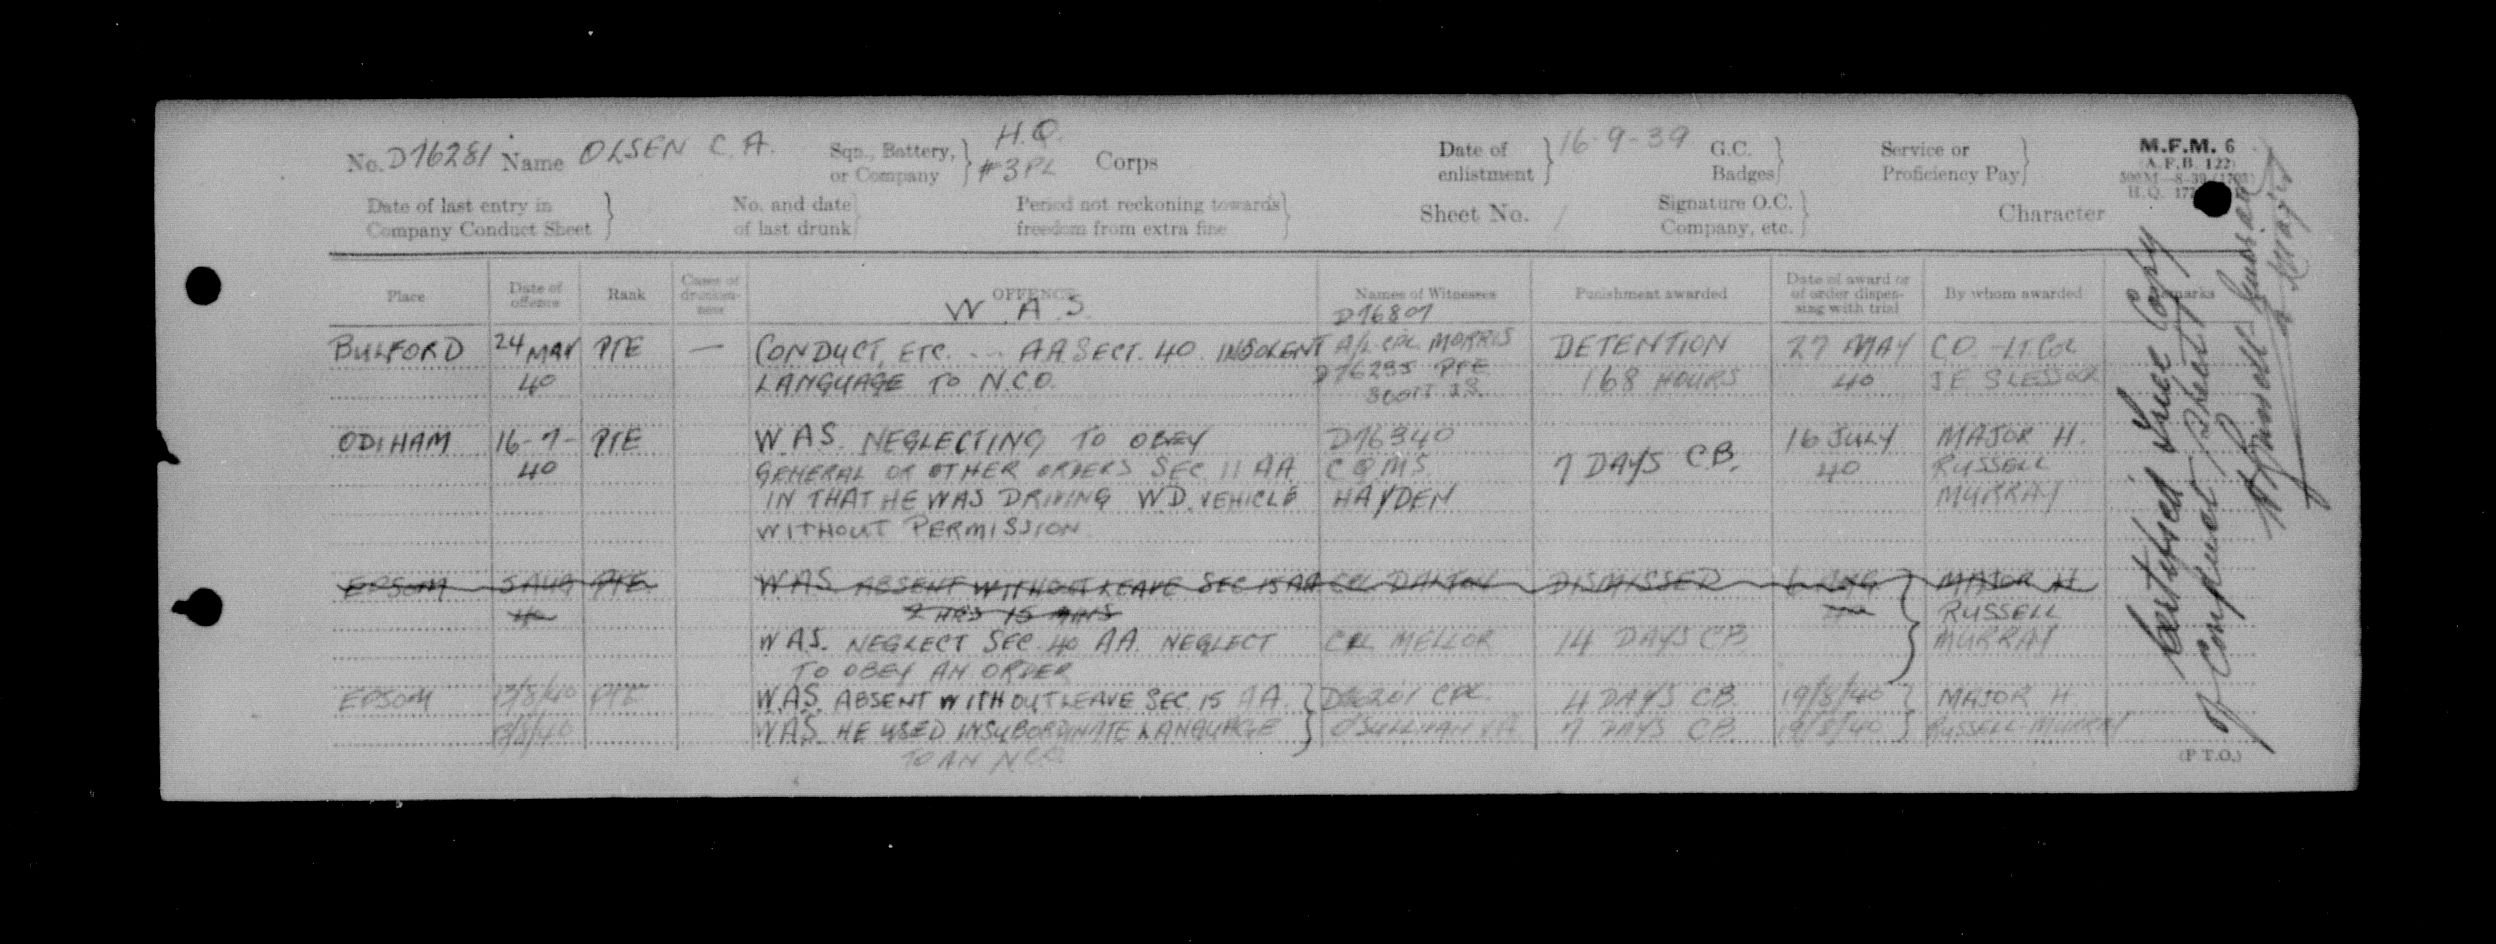 No. D76281 Name OLSEN C. A. Sqn., Battery, or Company } H.Q. #3 PL Corps Date of enlistment } 16-9-39 G.C. Badges} Service or Proficiency Pay} M.F.M. 6
(A.F.B. 122)
Date of last entry in Company Conduct Sheet } No. and date of last drunk} Period not reckoning towards freedom from extra fine } Sheet No. / Signature O.C. Company, etc. } Character
Place Date of offence Rank Cases of drunkenness OFFENCE Names of Witnesses Punishment awarded Date of award or of order dispensing with trial By whom awarded Remarks
W.A.S. D76807
BULFORD 24 MAY PTE — CONDUCT, ETC. --- A.A. SECT. 40. INSOLENT A/L CPL MORRIS DETENTION 27 MAY C.O. LT. COL
40 LANGUAGE TO N.C.O. D76295 PTE 168 HOURS 40 J E SLESSOR
SCOTT
ODIHAM 16-7- PTE W.A.S. NEGLECTING TO OBEY D76340 16 JULY MAJOR H.
40 GENERAL OR OTHER ORDERS SEC. 11 AA C Q M S. 7 DAYS C.B. 40 RUSSELL
IN THAT HE WAS DRIVING W.D. VEHICLE HAYDEN MURRAY
WITHOUT PERMISSION.
EPSOM 5 AUG PTE W.A.S. ABSENT WITHOUT LEAVE SEC 15 AA CPL DALTON DISMISSED 6 AUG } MAJOR H
40 2 HRS 15 MINS 40 RUSSELL
W.A.S. NEGLECT SEC 40 AA. NEGLECT CPL MELLOR 14 DAYS CB MURRAY
TO OBEY AN ORDER
EPSOM 13/8/40 PTE W.A.S. ABSENT WITHOUT LEAVE SEC. 15 A A. } CPL. 4 DAYS CB 19/8/40 } MAJOR H
18/8/40 W.A.S. HE USED INSUBORDINATE LANGUAGE } O'SULLIVAN 7 DAYS CB 19/8/40 } RUSSELL-MURRAY
TO AN NCO
(P.T.O.)
Certified True Copy
of Conduct Sheet